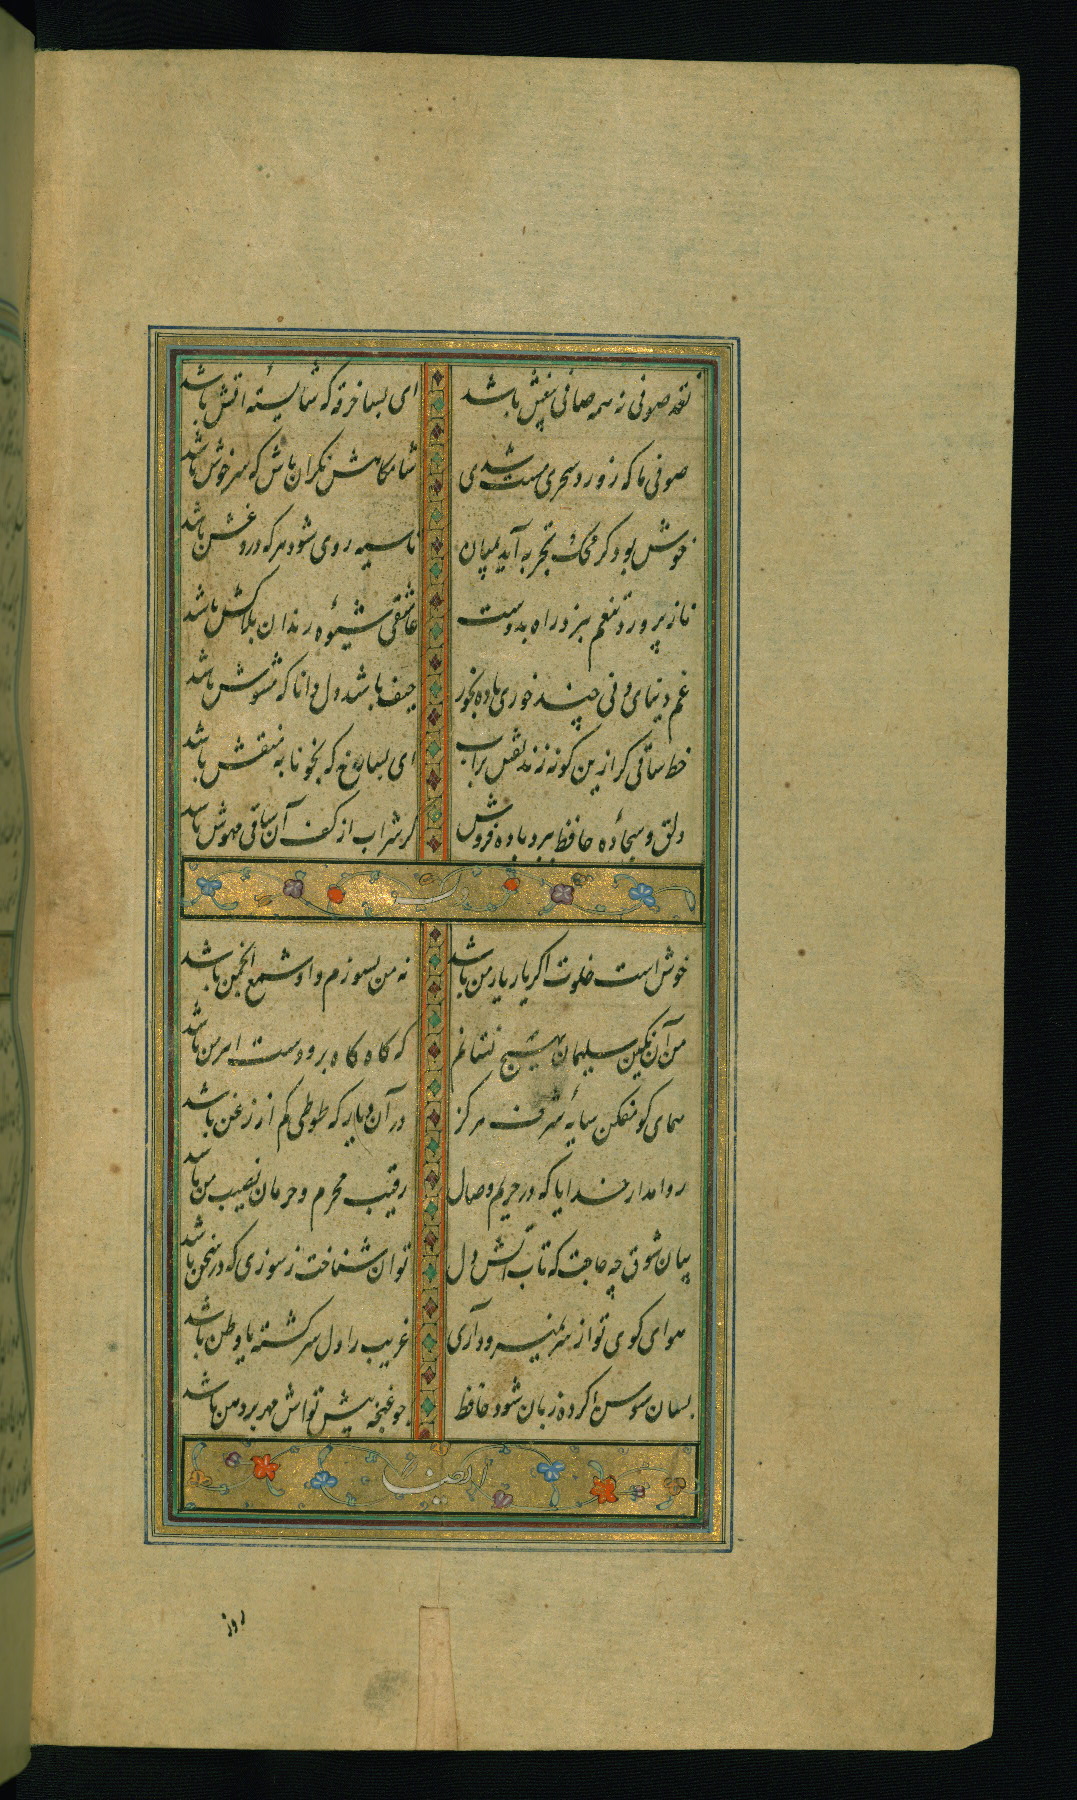 نقد صوفی نه همه صافی بیغش باشد ای بسا خرقه که شایستهٔ آتش باشد
صوفی ما که ز ورد سحری مست شدی شامگاهش نگران باش که سرخوش باشد
خوش بود گر محک تجربه آید بمیان تا سیه روی شود هر که درو غش باشد
ناز پرورد تنعم نبرد راه بدوست عاشقی شیوهٔ رندان بلاکش باشد
غم دنیای دنی چند خوری باده بخور حیف باشد دل دانا که مشوش باشد
خط ساقی گر ازین گونه زند نقش بر آب ای بسا رخ که بخونابه منقش باشد
دلق و سجادهٔ حافظ ببرد باده فروش گر شراب از کف آن ساقی مهوش باشد
خوش است خلوت اگر یار یار من باشد نه من بسوزم و او شمع انجمن باشد
من آن نگین سلیمان بهیچ نستانم که گاه گاه برو دست اهرمن باشد
همای گو مفکن سایهٔ شرف هرگز در آن دیار که طوطی کم از زغن باشد
روا مدار خدایا که در حریم وصال رقیب محرم و حرمان نصیب من باشد
بیان شوق چه حاجت که تاب آتش دل توان شناخت ز سوزی که در سخن باشد
هوای کوی تو از سر نمیرود آری غریب را دل سرگشته با وطن باشد
بسان سوسن اگر ده زبان شود حافظ چو غنچه پیش تواش مهر بر دهن باشد
ایضا
روز